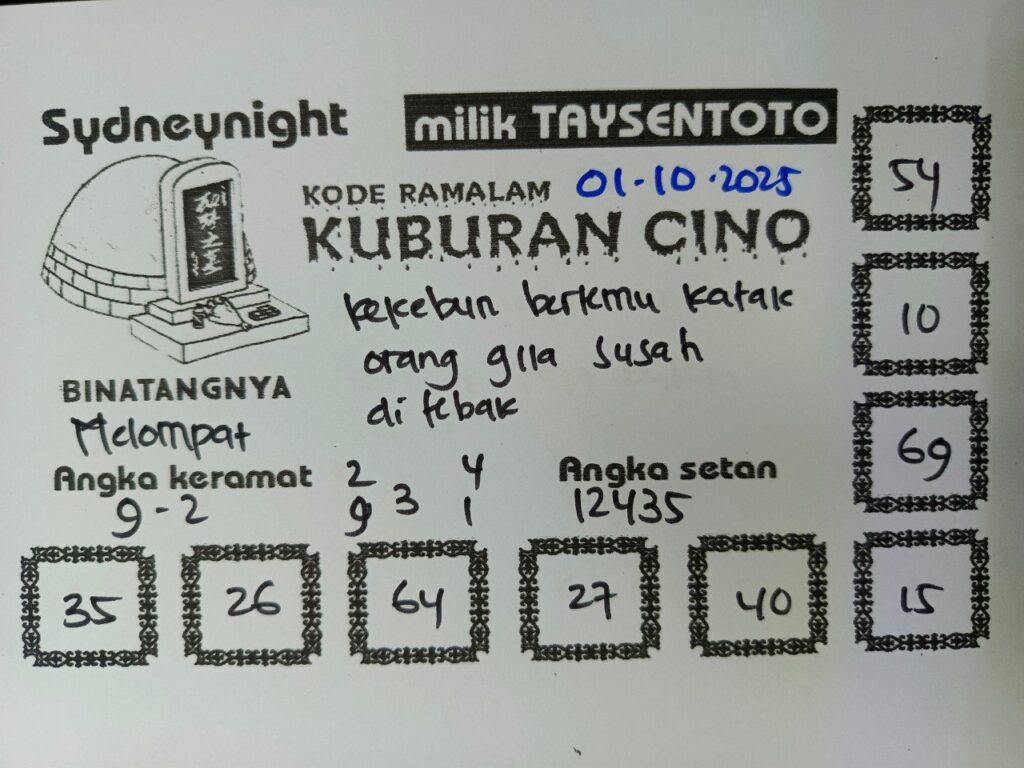 Sydneynight
milik TAYSENTOTO
KODE RAMALAM 01-10-2025
KUBURAN CINO
kekebun berkmu katak
orang gila susah
di tebak
BINATANGNYA
Melompat
Angka keramat
9-2
2 4
9 3 1
Angka setan
12435
54
10
69
15
35 26 64 27 40